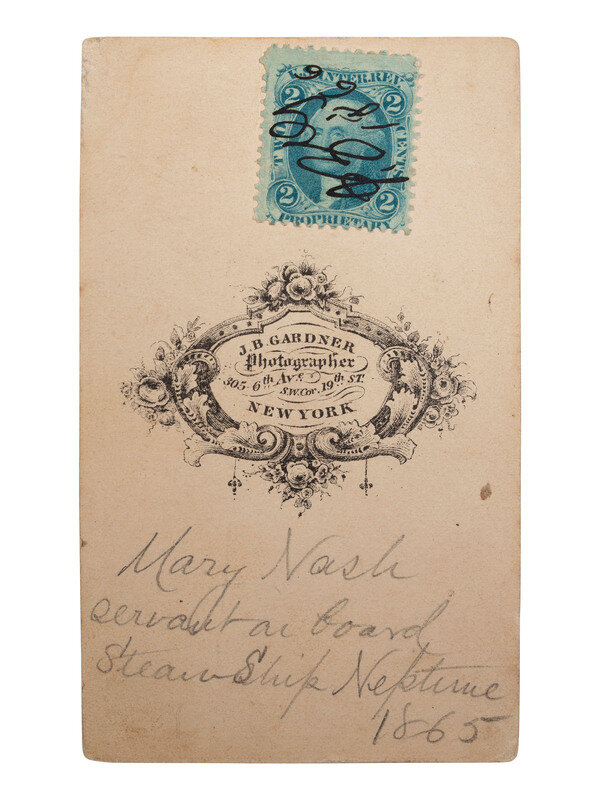 U.S. INTER. REV.
2 2
CENTS
2 2
PROPRIETARY
J.B. GARDNER
Photographer
305 6th Ave
S.W. Cor. 19th ST.
NEW YORK
Mary Nash
servant on board
Steam Ship Neptune
1865